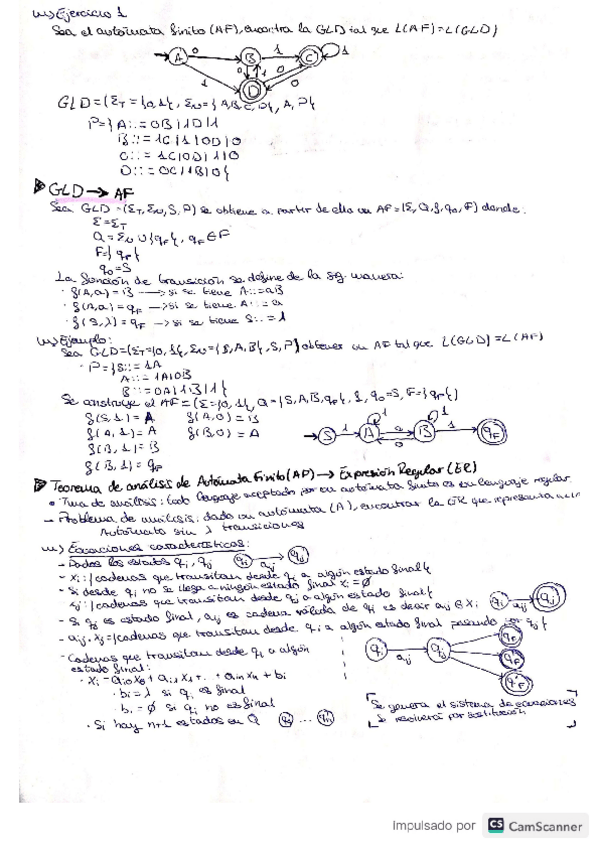 Ejercicio 1
Sea el autómata finito (AF), encontra la GLD tal que L(AF)=L(GLD)
A 0 B 1 C 1
1 0 1 0 0
D
GLD=(ΣT={0,1}, ΣN={A,B,C,D}, A, P}
P={A::=0B|1D|1
B::=1C|1|0D|0
C::=1C|0D|1|0
D::=0C|1B|0{
GLD → AF
Sea GLD=(ΣT,ΣN,S,P) se obtiene a partir de ello un AF=(Σ,Q,f,q0,F) donde:
Σ=ΣT
Q=ΣN∪{qF}, qF∈F
F={qF}
q0=S
La función de transición se define de la sig. manera:
· f(A,a)=B → si se tiene A::=aB
· f(A,a)=qF → si se tiene A::=a
· f(S,λ)=qF → si se tiene S::=λ
Ejemplo:
Sea GLD=(ΣT={0,1}, ΣN={S,A,B}, S, P) obtener un AF tal que L(GLD)=L(AF)
· P={S::=1A
A::=1A|0B
B::=0A|1B|1{
Se construye el AF=(Σ={0,1}, Q={S,A,B,qF}, f, q0=S, F={qF})
f(S,1)=A f(A,0)=B
f(A,1)=A f(B,0)=A
f(B,1)=B
f(B,1)=qF
S 1 A 1 0 0 B 1 1 qF
Teorema de análisis de Autómata Finito(AF) → Expresión Regular (ER)
· Tma de análisis: todo lenguaje aceptado por un autómata finito es un lenguaje regular
- Problema de análisis: dado un autómata (A), encontrar la ER que representa
Autómato sin λ transiciones
Ecuaciones características:
- Dados los estados qi, qj qi aij qj
- Xi={cadenas que transitan desde qi a algún estado final{
- Si desde qi no se llega a ningún estado final Xi=Ø
- Xj={cadenas que transitan desde qj a algún estado final{
- Si qj es estado final, aij es cadena válida de qi es decir aij ∈ Xi qi aij qj
- aij·Xj={cadenas que transitan desde qi a algún estado final pasando por qj{
- Cadenas que transitan desde qi a algún
estado final:
· Xi=ai0X0+ai1X1+...+ainXn+bi
· bi=λ si qi es final
· bi=Ø si qi no es final
· Si hay n+1 estados en Q
qi aij qj qF qF qF
Se genera el sistema de ecuaciones
Se resolverá por sustitución
Impulsado por CS CamScanner